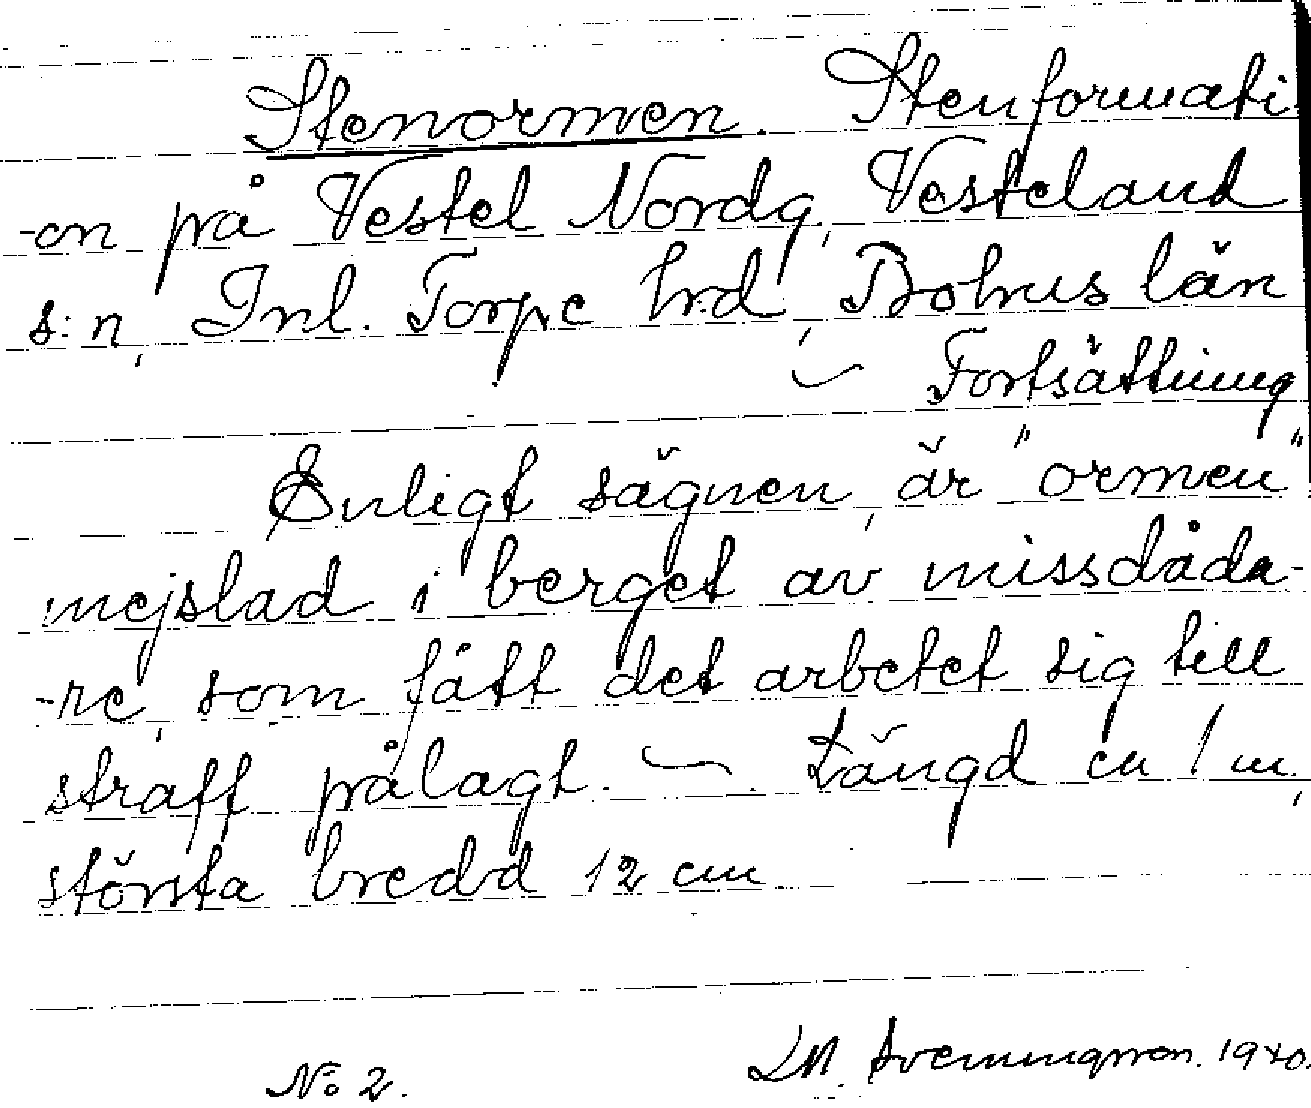 Stenormen. Stenformati
-on på Vestel Nordg, Vesteland
s:n, Inl. Torpe hrd, Bohus län
— Fortsättning
Enligt sägnen, är "ormen"
mejslad i berget av missdåda-
-re, som fått det arbetet sig till
straff pålagt. — Längd ca 1 m,
största bredd 12 cm
No 2. 1940.